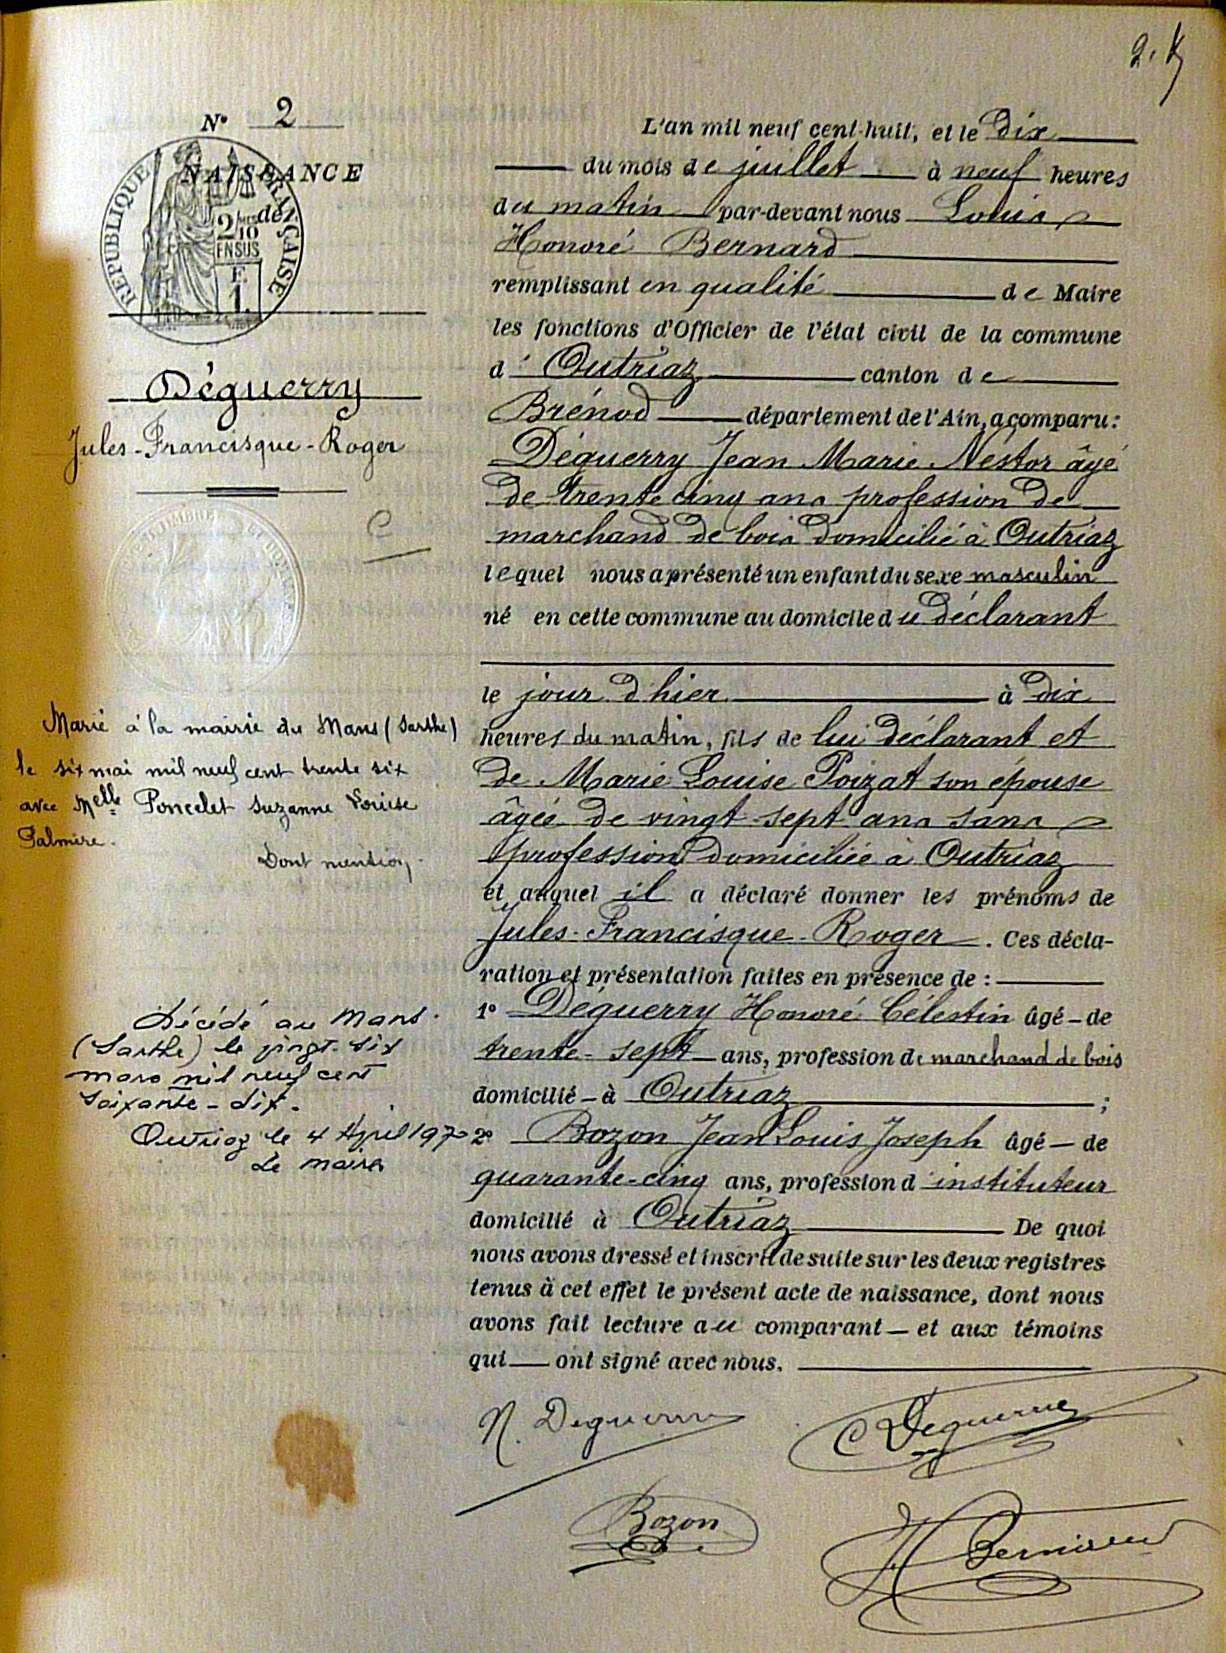 2.
N° 2
NAISSANCE
de
RÉPUBLIQUE FRANÇAISE
2/10
EN SUS
F.
1.
Déguerry
Jules-Francisque-Roger
C
Marié à la mairie du Mans (Sarthe)
le six mai mil neuf cent trente six
avec Melle Poncelet Suzanne Louise
Palmire.
Dont mention.
Décédé au Mans.
(Sarthe) le vingt-six
mars mil neuf cent
soixante-dix.
Outriaz le 4 April 1970
Le maire
L'an mil neuf cent-huit, et le dix
du mois de juillet à neuf heures
du matin par-devant nous Louis
Honoré Bernard
remplissant en qualité de Maire
les fonctions d'Officier de l'état civil de la commune
d' Outriaz canton de
Brénod département de l'Ain, a comparu :
Déguerry Jean Marie Nestor âgé
de trente cinq ans profession de
marchand de bois domicilié à Outriaz
lequel nous a présenté un enfant du sexe masculin
né en cette commune au domicile du déclarant
le jour d'hier à dix
heures du matin, fils de lui déclarant et
de Marie Louise Poizat son épouse
âgée de vingt-sept ans sans
profession domiciliée à Outriaz
et auquel il a déclaré donner les prénoms de
Jules-Francisque-Roger. Ces décla-
ration et présentation faites en présence de :
1° Déguerry Honoré Célestin âgé de
trente-sept ans, profession de marchand de bois
domicilié à Outriaz ;
2° Bozon Jean Louis Joseph âgé de
quarante-cinq ans, profession d'instituteur
domicilié à Outriaz De quoi
nous avons dressé et inscrit de suite sur les deux registres
tenus à cet effet le présent acte de naissance, dont nous
avons fait lecture au comparant et aux témoins
qui ont signé avec nous.
N. Deguerry
C Deguerry
Bozon
H Bernard